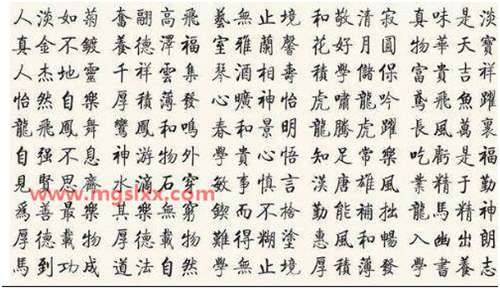 人淡如菊 奮翮高飛 藝無止境 和敬清寂 真味是淡
真金不鍍 養德澤福 室雅蘭馨 花好月圓 物華天寶
人杰地靈 千祥雲集 琴酒相壽 積學儲保 富貴吉祥
怡然自樂 厚積薄發 心曠神怡 虎嘯龍吟 鳶飛魚躍
龍飛鳳舞 鸞鳳和鳴 春和景明 龍騰虎躍 長風萬裏
自强不息 神游物外 學貴心悟 知足常樂 吃虧是福
見賢思齊 水滴石穿 敏事慎言 漢唐雄風 業精于勤
www.mgslxx.com
爲善最樂 其樂無窮 鍥而不捨 勤能補拙 龍馬精神
厚德載物 厚德載物 難得糊塗 惠風和暢 入幽出朗
馬到功成 道法自然 學無止境 厚積薄發 學書養